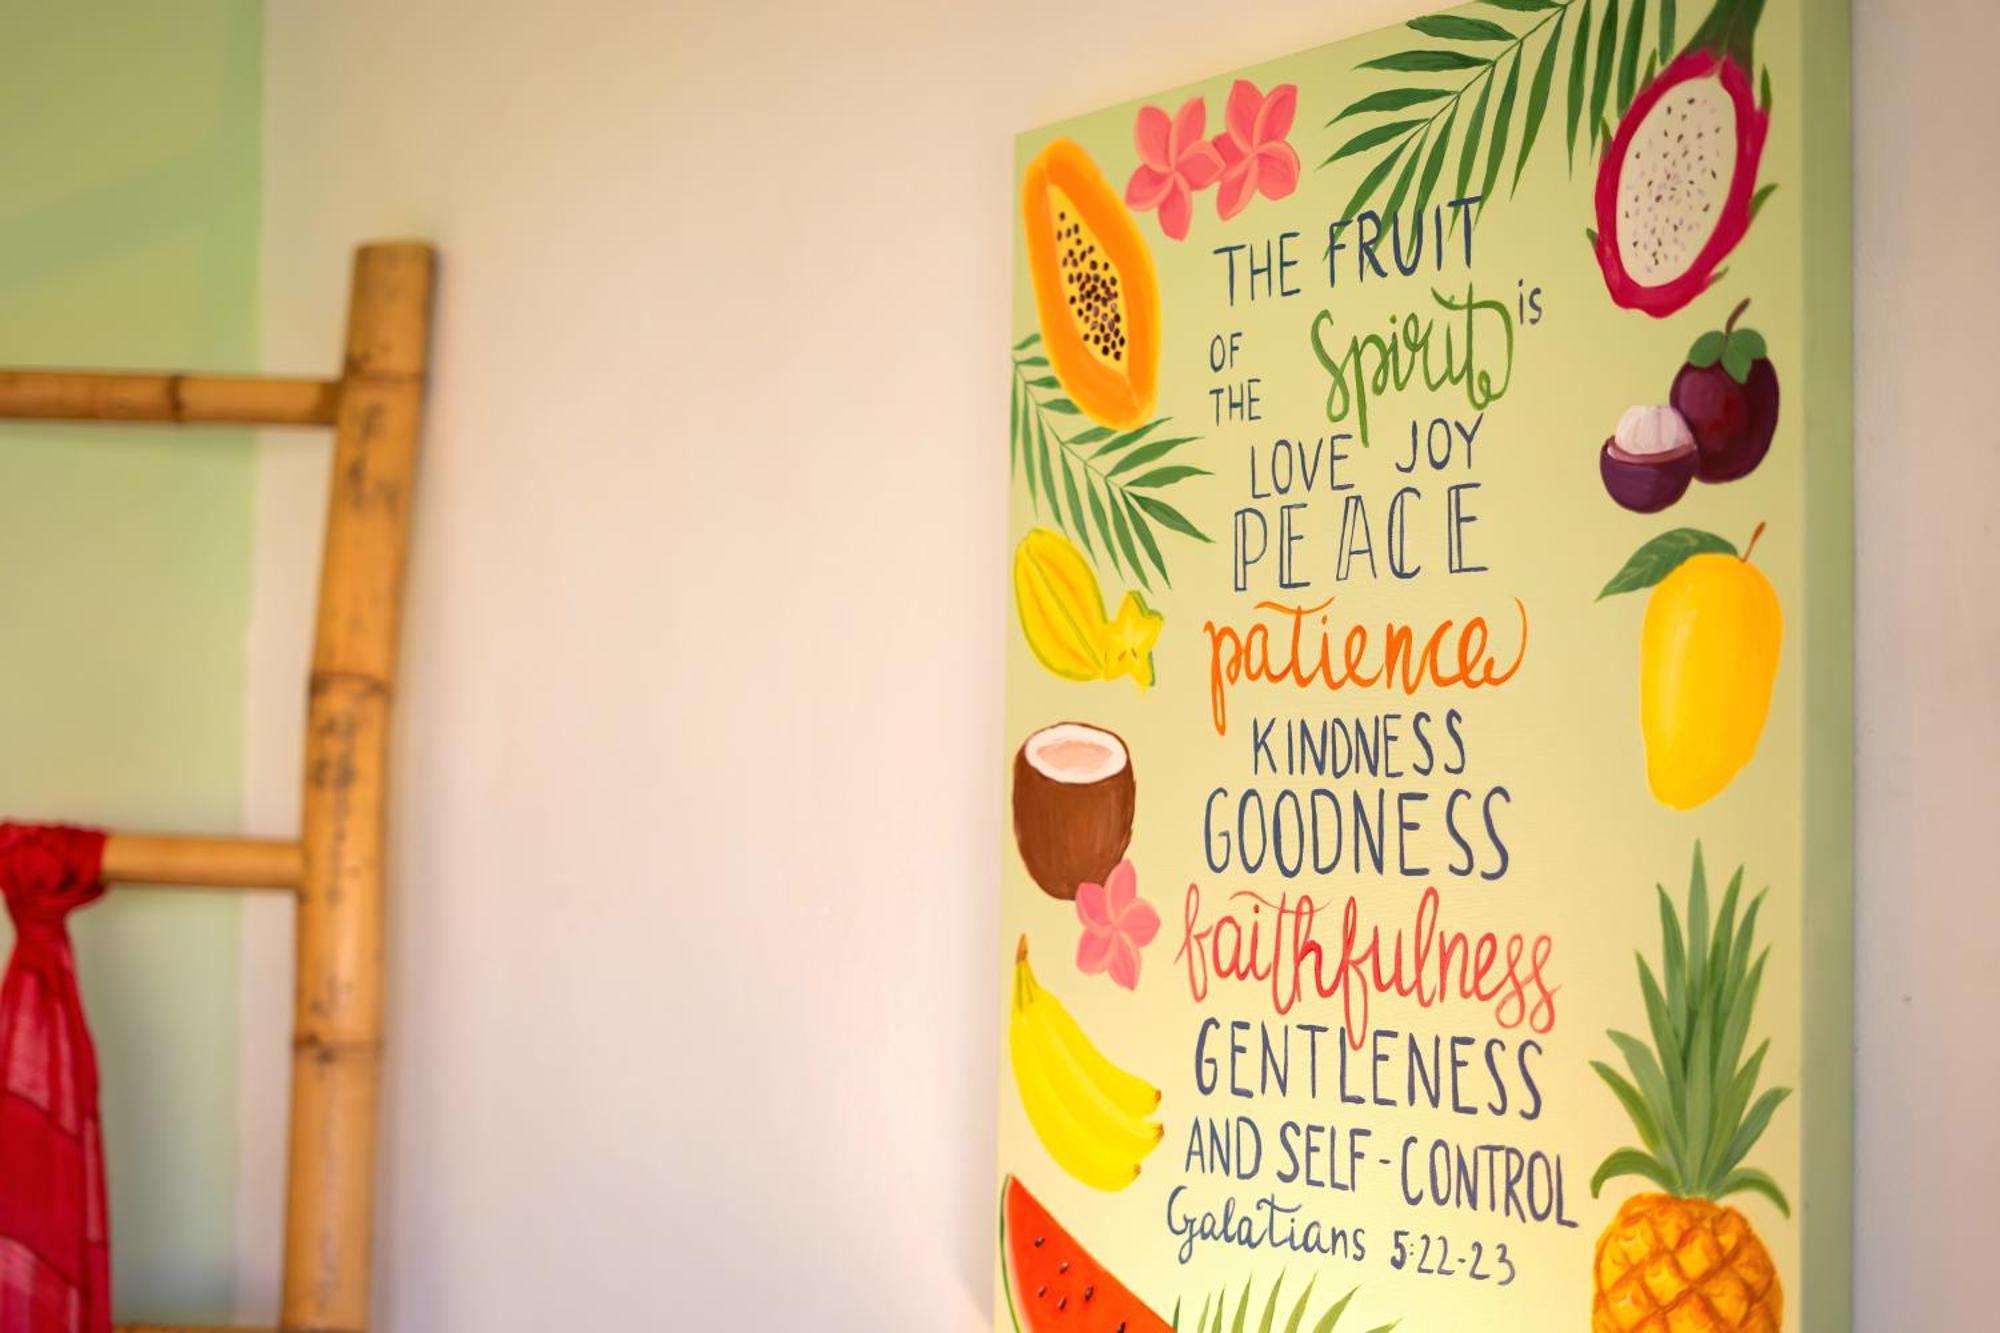 THE FRUIT
OF THE Spirit is
LOVE JOY
PEACE
patience
KINDNESS
GOODNESS
faithfulness
GENTLENESS
AND SELF-CONTROL
Galatians 5:22-23